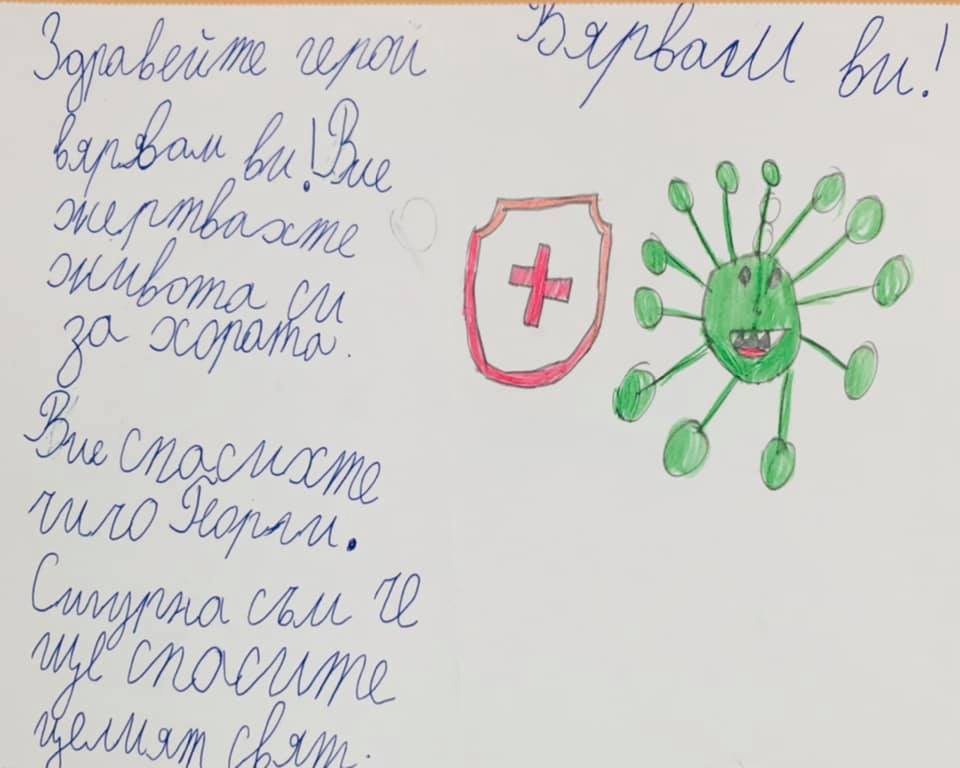 Здравейте герои
вярвам ви! Вие
жертвахте
живота си
за хората.
Вие спасихте
чичо Георги.
Сигурна съм че
ще спасите
целият свят.
Вярвам ви!